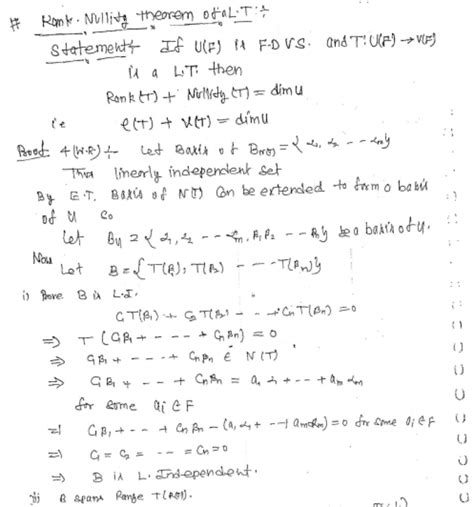 # Rank-Nullity theorem of a L.T :÷
Statement: If U(F) is F.D.V.S. and T: U(F) → V(F)
is a L.T. then
Rank(T) + Nullity(T) = dim U
i.e ρ(T) + ν(T) = dim U
Proof: 4(W.R) ÷ Let Basis of B_N(T) = { α₁, α₂ - - - αₘ}
This linearly independent set
By E.T. Basis of N(T) Can be extended to form a basis
of U So
Let B_U = { α₁, α₂ - - - αₘ, β₁, β₂ - - - βₙ} be a basis of U.
Now Let B = { T(β₁), T(β₂) - - - - T(βₙ)}
i) Prove B is L.I.
C₁T(β₁) + C₂T(β₂) - - + CₙT(βₙ) = 0
⇒ T (C₁β₁ + - - - + Cₙβₙ) = 0
⇒ C₁β₁ + - - - + Cₙβₙ ∈ N(T)
⇒ C₁β₁ + - - + Cₙβₙ = a₁α₁ + - - + aₘαₘ
for some aᵢ ∈ F
⇒ C₁β₁ + - - + Cₙβₙ - (a₁α₁ + - - + aₘαₘ) = 0 for some aᵢ ∈ F
⇒ C₁ = C₂ = - - = Cₙ = 0
⇒ B is L. Independent.
ii) B spans Range